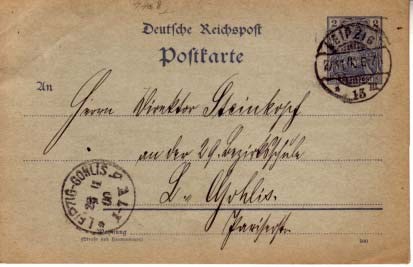 Deutsche Reichspost
Postkarte
2
LEIPZIG
13
An
Herrn Direktor Steinkopf
an der 29. Bezirksschule
L. Gohlis.
LEIPZIG-GOHLIS
Wohnung
(Straße und Hausnummer)